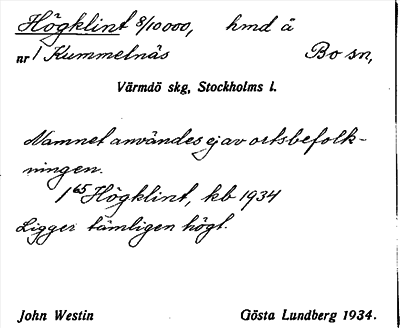 Högklint 8/10000, hmd å
nr 1 Kummelnäs Bo sn,
Värmdö skg, Stockholms l.
Namnet användes ej av ortsbefolk-
ningen.
1⁶⁵ Högklint, kb 1934
Ligger tämligen högt.
John Westin Gösta Lundberg 1934.